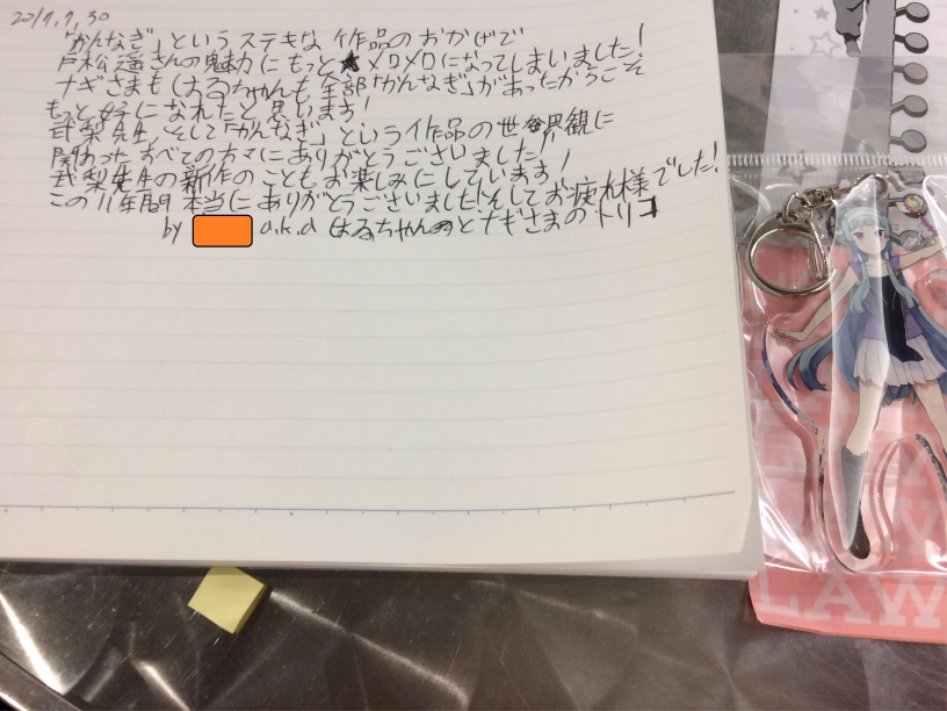 2017.9.30
「かんなぎ」というステキな作品のおかげで
戸松遥さんの魅力にもっと★メロメロになってしまいました!
ナギさまもはるちゃんも全部「かんなぎ」があったからこそ
もっと好きになれたと思います!
武梨先生、そして「かんなぎ」という作品の世界観に
関わったすべての方々にありがとうございました!
武梨先生の新作のこともお楽しみにしています!
この11年間本当にありがとうございましたそしてお疲れ様でした!
by a.k.a はるちゃんとナギさまのトリコ
LAW